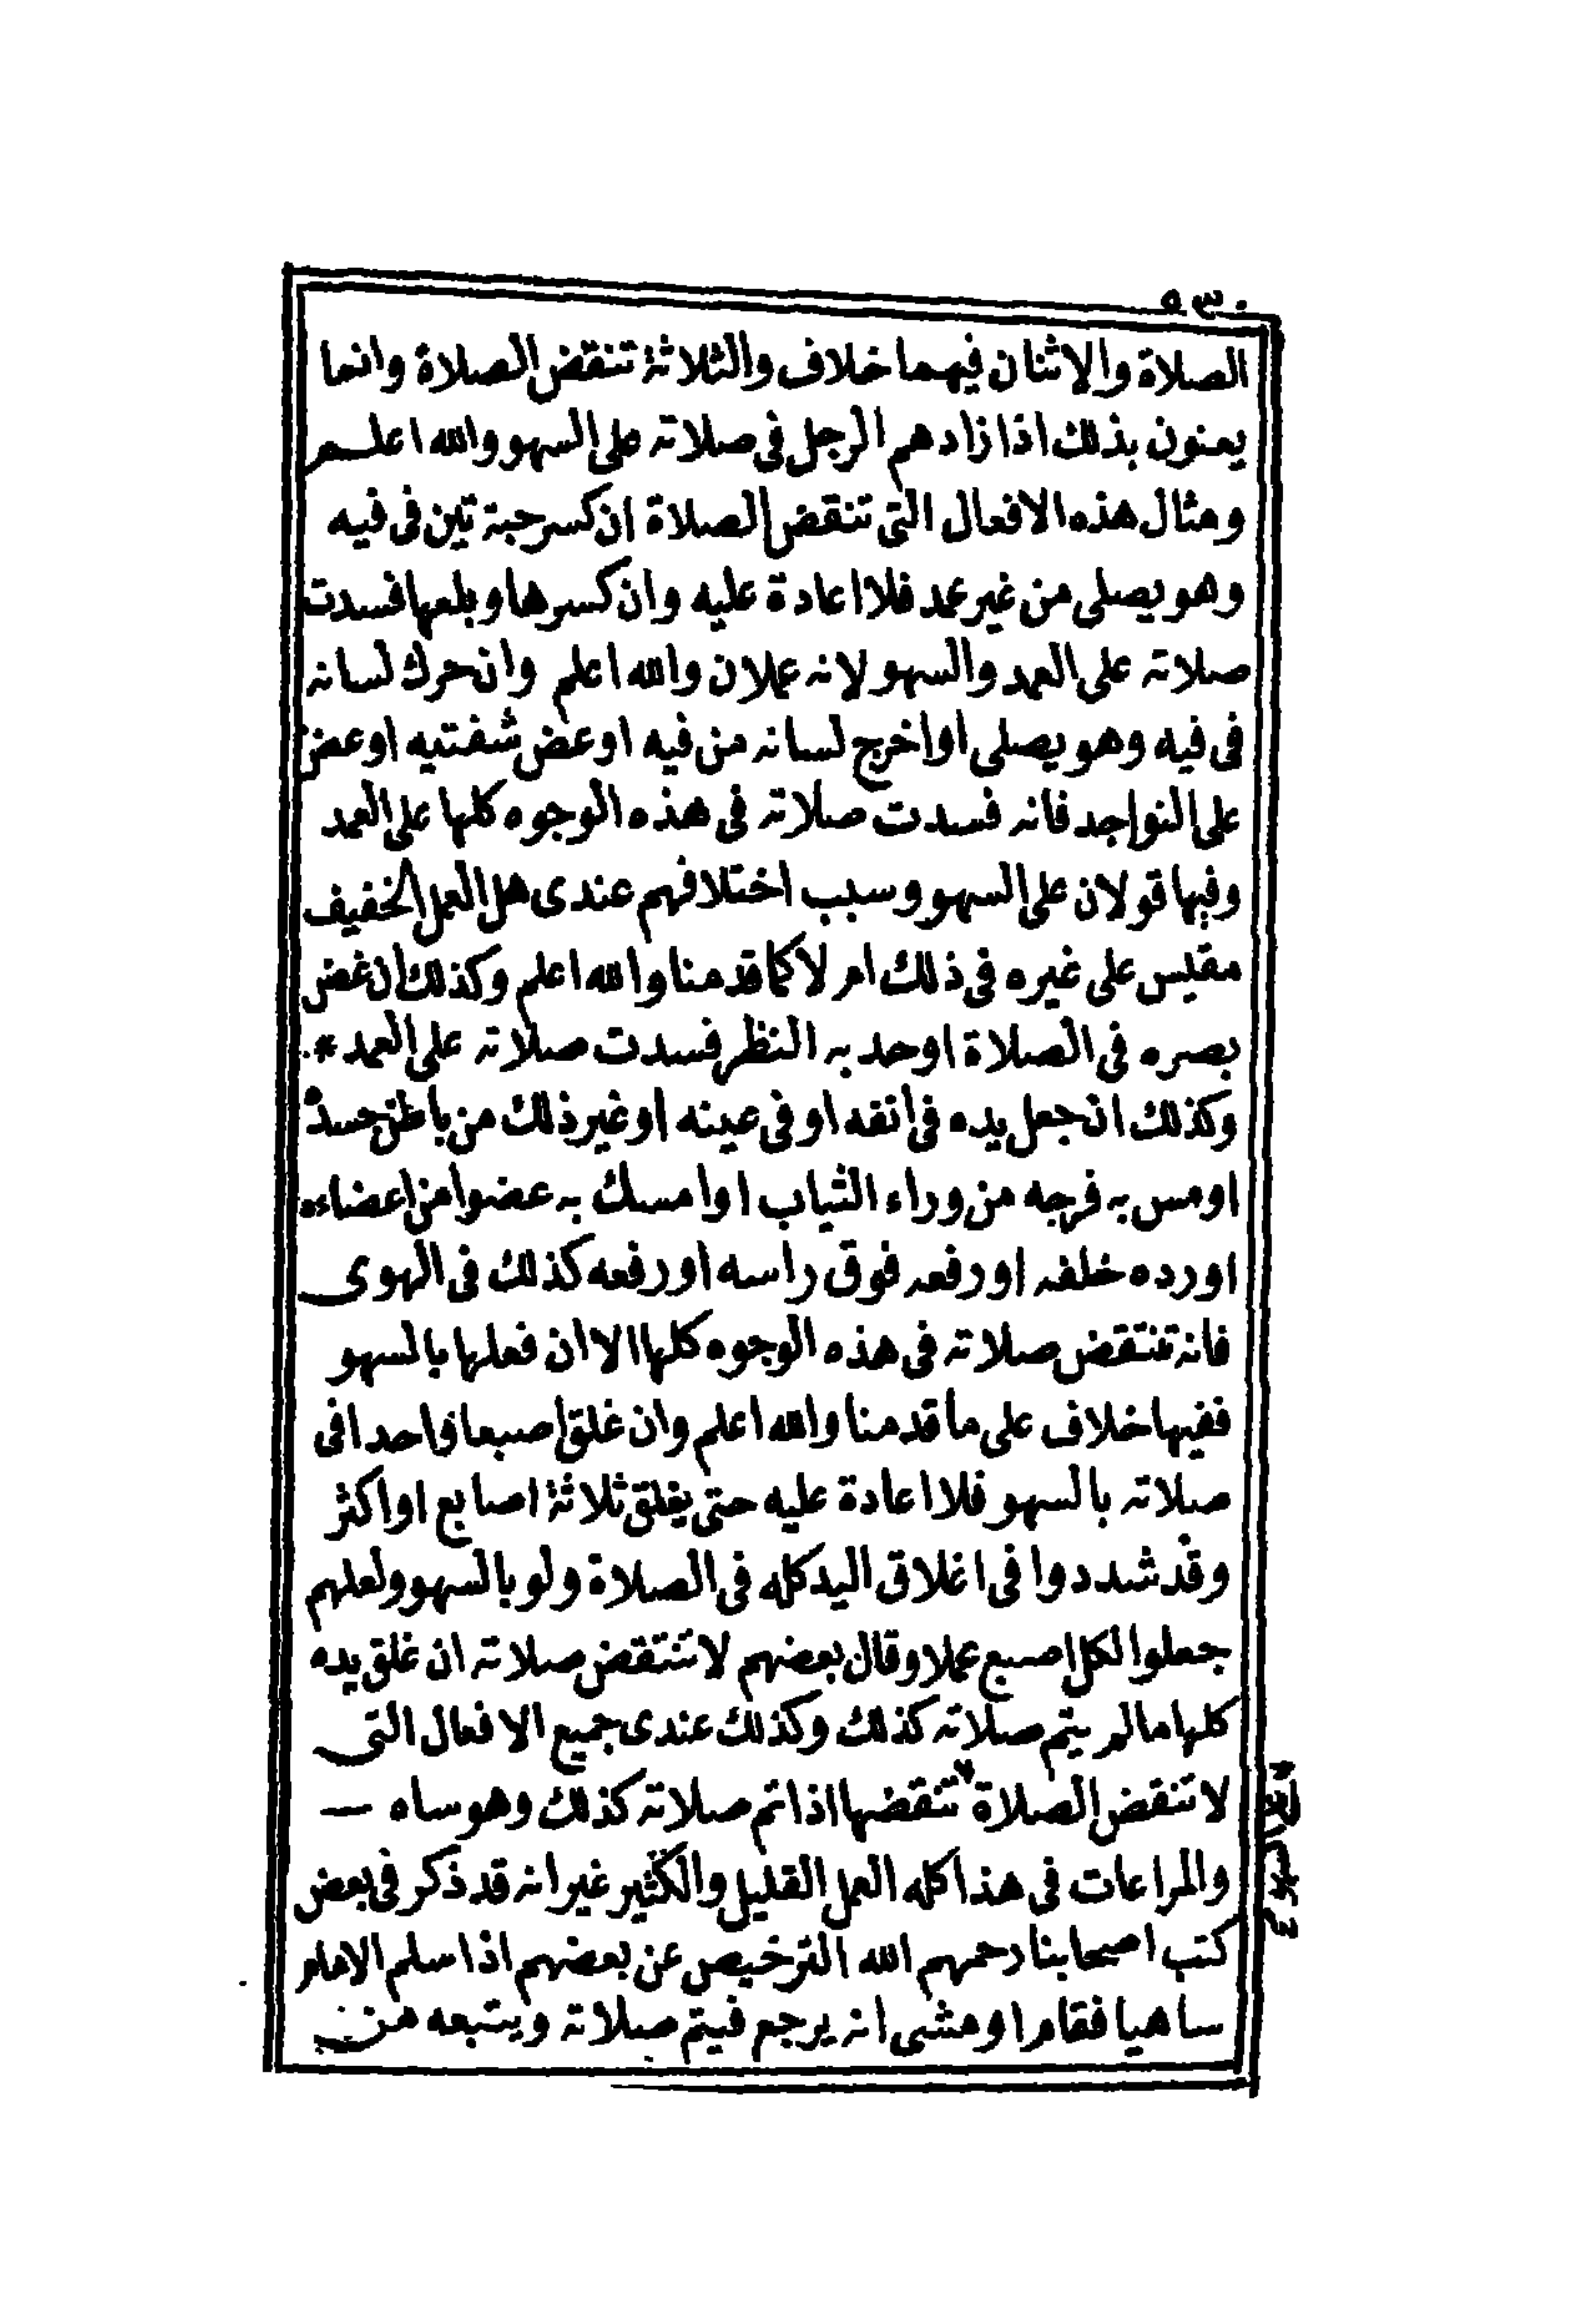 ٥٣٠
الصلاة والاثنان فيهما خلاف والثلاثة تنقض الصلاة وانما
يعنون بذلك اذا زادهم الرجل فى صلاته على السهو والله اعلم
ومثال هذه الافعال التى تنقض الصلاة ان كسر حبة تين فى فيه
وهو يصلى من غير عمد فلا اعادة عليه وان كسرها وبلعها فسدت
صلاته على العمد والسهو لانه عملان والله اعلم وان حرك لسانه
فى فيه وهو يصلى او اخرج لسانه من فيه او عض شفتيه او عض
على النواجد فانه فسدت صلاته فى هذه الوجوه كلها على العمد
وفيها قولان على السهو وسبب اختلافهم عندى هل العمل الخفيف
مقيس على غيره فى ذلك ام لا كما قدمنا والله اعلم وكذلك ان غض
بصره فى الصلاة او حد به النظر فسدت صلاته على العمد *
وكذلك ان جعل يده فى انفه او فى عينه او غير ذلك من باطن جسده
او مس به فرجه من وراء الثياب او امسك به عضوا من اعضاءه
او رده خلفه او رفعه فوق راسه او رفعه كذلك فى الهوى
فانه تنتقض صلاته فى هذه الوجوه كلها الا ان فعلها بالسهو
ففيها خلاف على ما قدمنا والله اعلم وان غلق اصبعا واحدا فى
صلاته بالسهو فلا اعادة عليه حتى يغلق ثلاثة اصابع او اكثر
وقد شددوا فى اغلاق اليد كله فى الصلاة ولو بالسهو ولعلهم
جعلوا لكل اصبع عملا وقال بعضهم لا تنتقض صلاته ان غلق يده
كلها مالم يتم صلاته كذلك وكذلك عندى جميع الافعال التى
لا تنقض الصلاة تنقضها اذا تم صلاته كذلك وهو ساه —
والمراعات فى هذا كله العمل القليل والكثير غير انه قد ذكر فى بعض
كتب اصحابنا رحمهم الله الترخيص عن بعضهم اذا سلم الامام
ساهيا فقام او مشى انه يرجع فيتم صلاته ويتبعه من